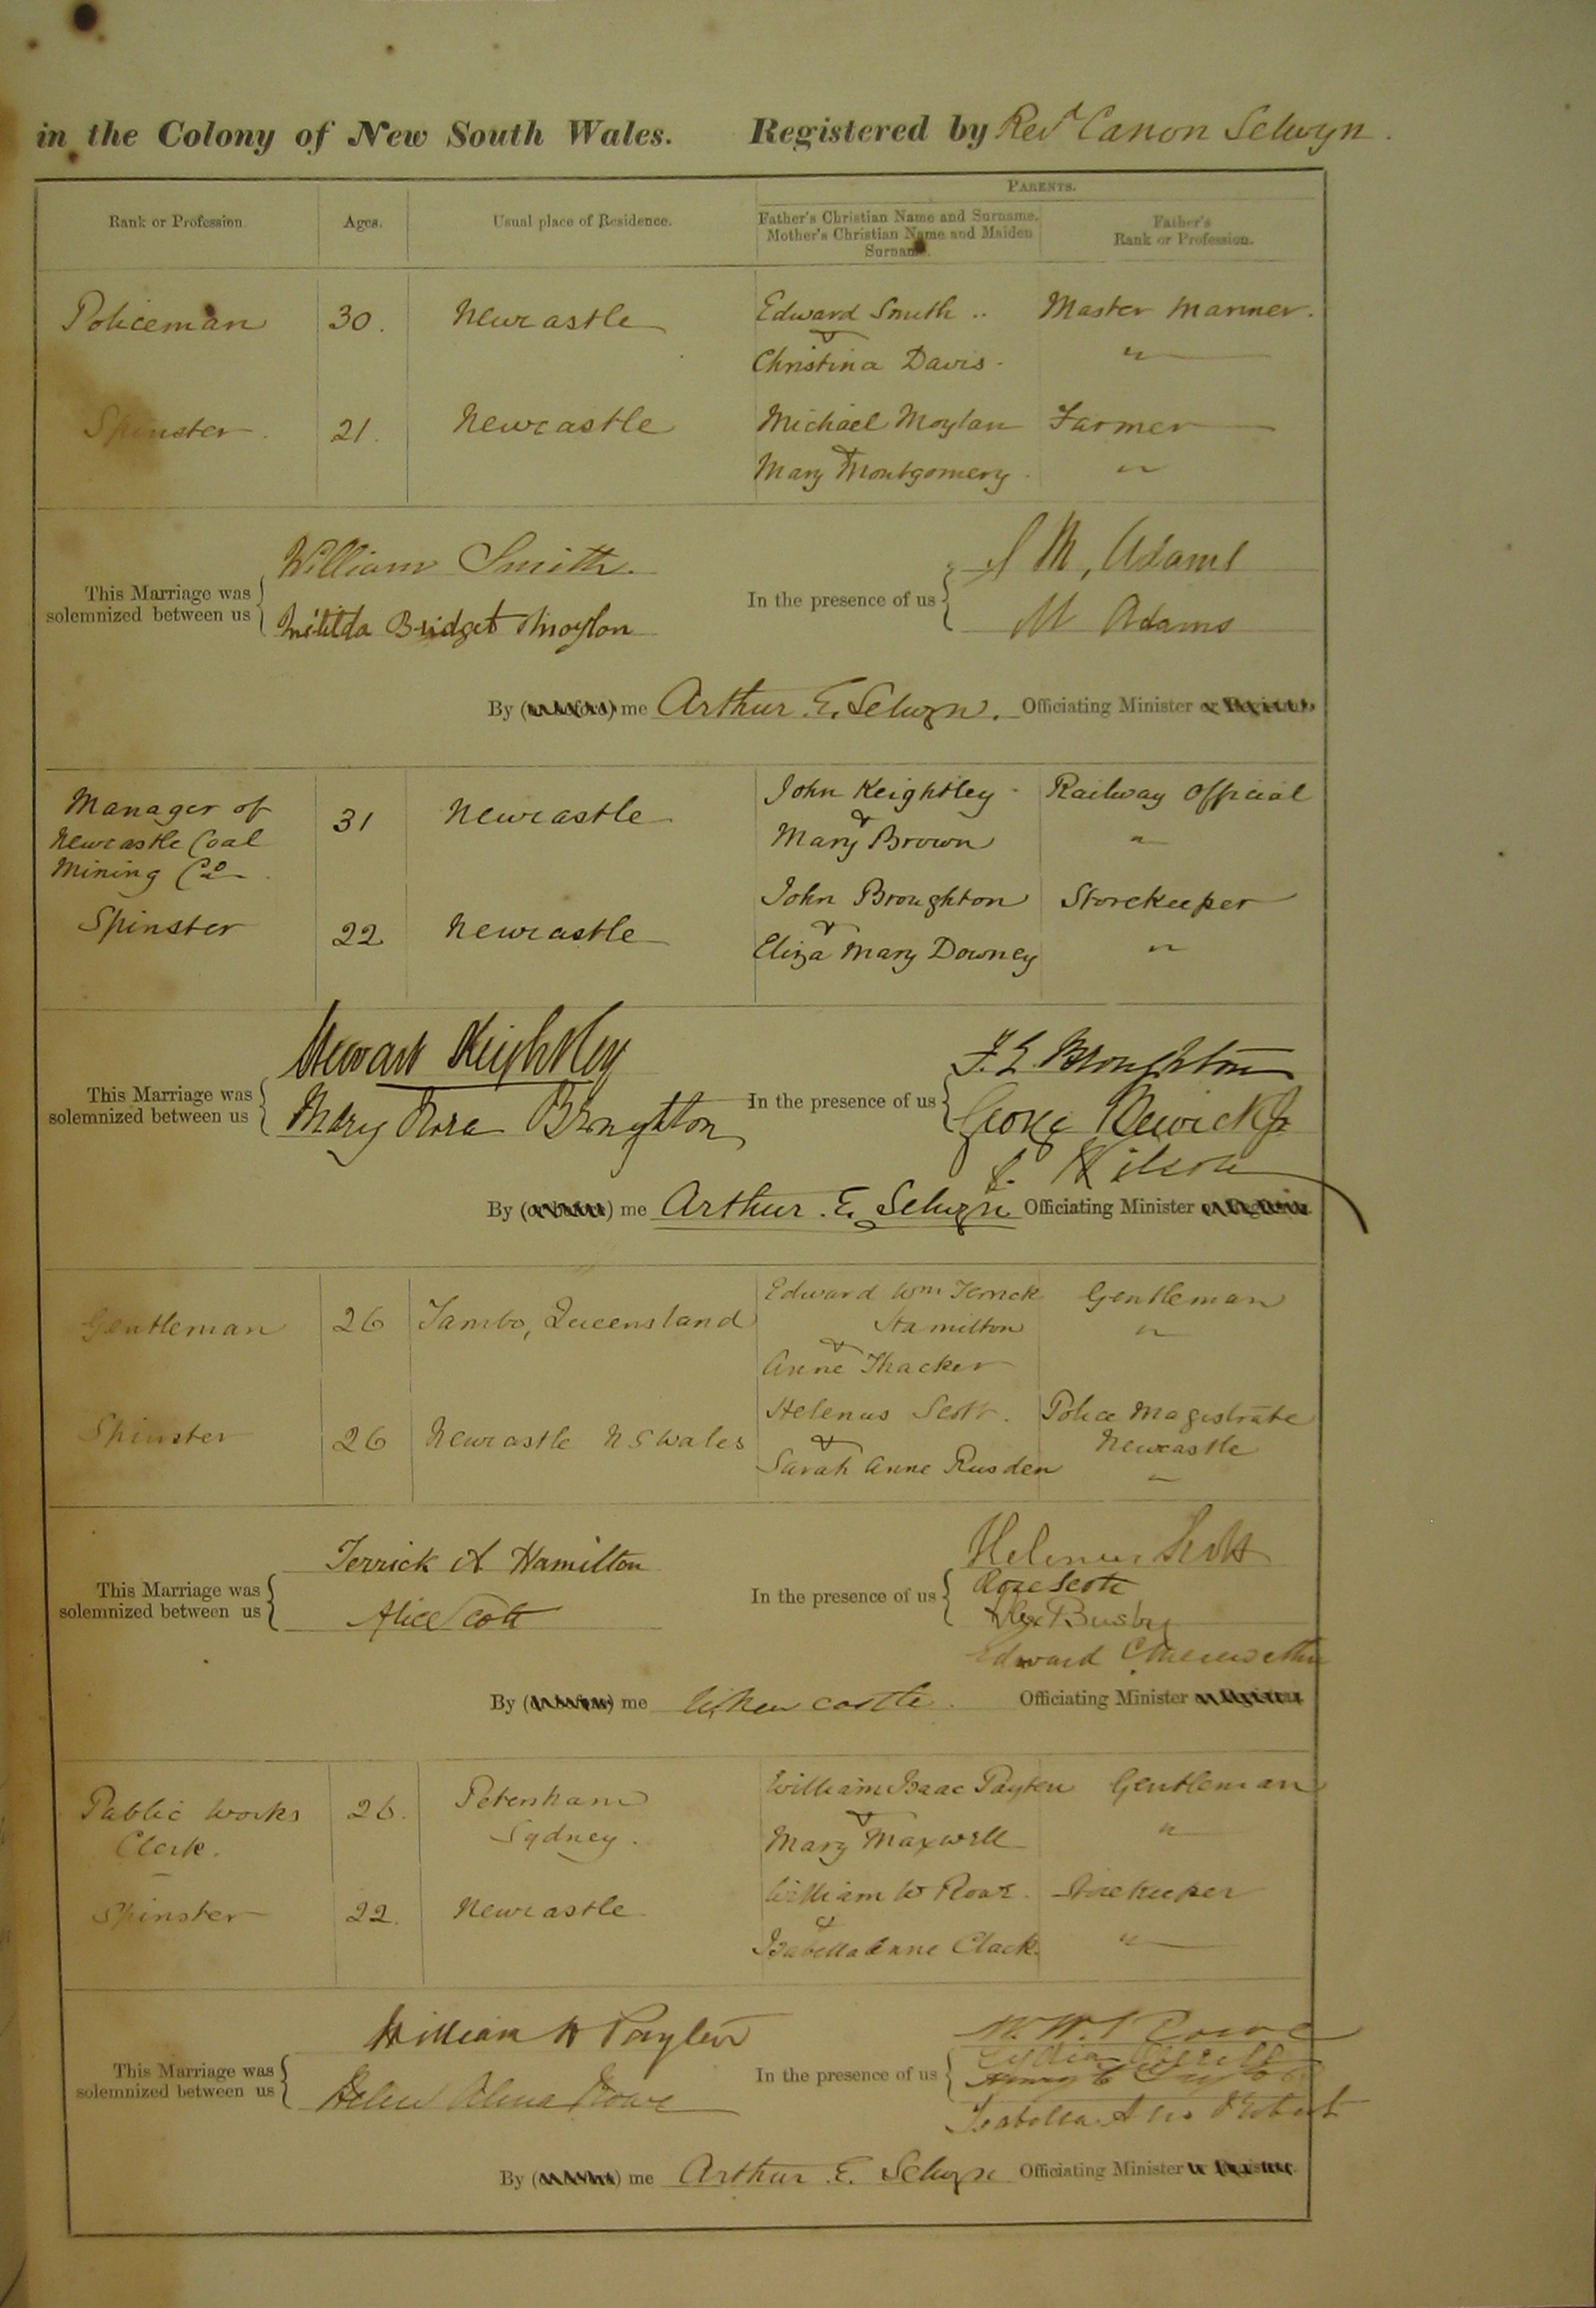 in the Colony of New South Wales. Registered by Revd Canon Selwyn.
PARENTS.
Rank or Profession. Ages. Usual place of Residence. Father's Christian Name and Surname. Mother's Christian Name and Maiden Surname. Father's Rank or Profession.
Policeman 30. Newcastle Edward Smith .. Master Mariner.
& Christina Davis. "
Spinster. 21. Newcastle Michael Moylan Farmer
& Mary Montgomery. "
William Smith.
This Marriage was solemnized between us In the presence of us
M, Adams
Bridget Moylon M Adams
By me Arthur E. Selwyn. Officiating Minister
Manager of 31 Newcastle John Keightley Railway Official
Newcastle Coal & Mary Brown "
Mining Co.
Spinster 22 Newcastle John Broughton Storekeeper
& Eliza Mary Downey "
Stewart Keightley
This Marriage was solemnized between us In the presence of us
F. E. Broughton
Mary Rosa Broughton George
Wilson
By me Arthur E. Selwyn Officiating Minister
Gentleman 26 Tambo, Queensland Edward Wm Terrick Gentleman
Hamilton "
& Anne Thacker
Spinster 26 Newcastle N S Wales Helenus Scott. Police Magistrate
& Newcastle
Sarah Anne Rusden "
Terrick A Hamilton Helenus Scott
This Marriage was solemnized between us In the presence of us
Rose Scott
Alice Scott Busby
Edward
By me Newcastle. Officiating Minister
Public Works 26. Petersham William Isaac Payten Gentleman
Clerk. Sydney. & Mary Maxwell "
Spinster 22. Newcastle William W Rowe. Storekeeper
& Isabella Anne Clack. "
William H Payten W. W. Rowe
This Marriage was solemnized between us In the presence of us
Helen Rowe
Isabella
By me Arthur E. Selwyn Officiating Minister